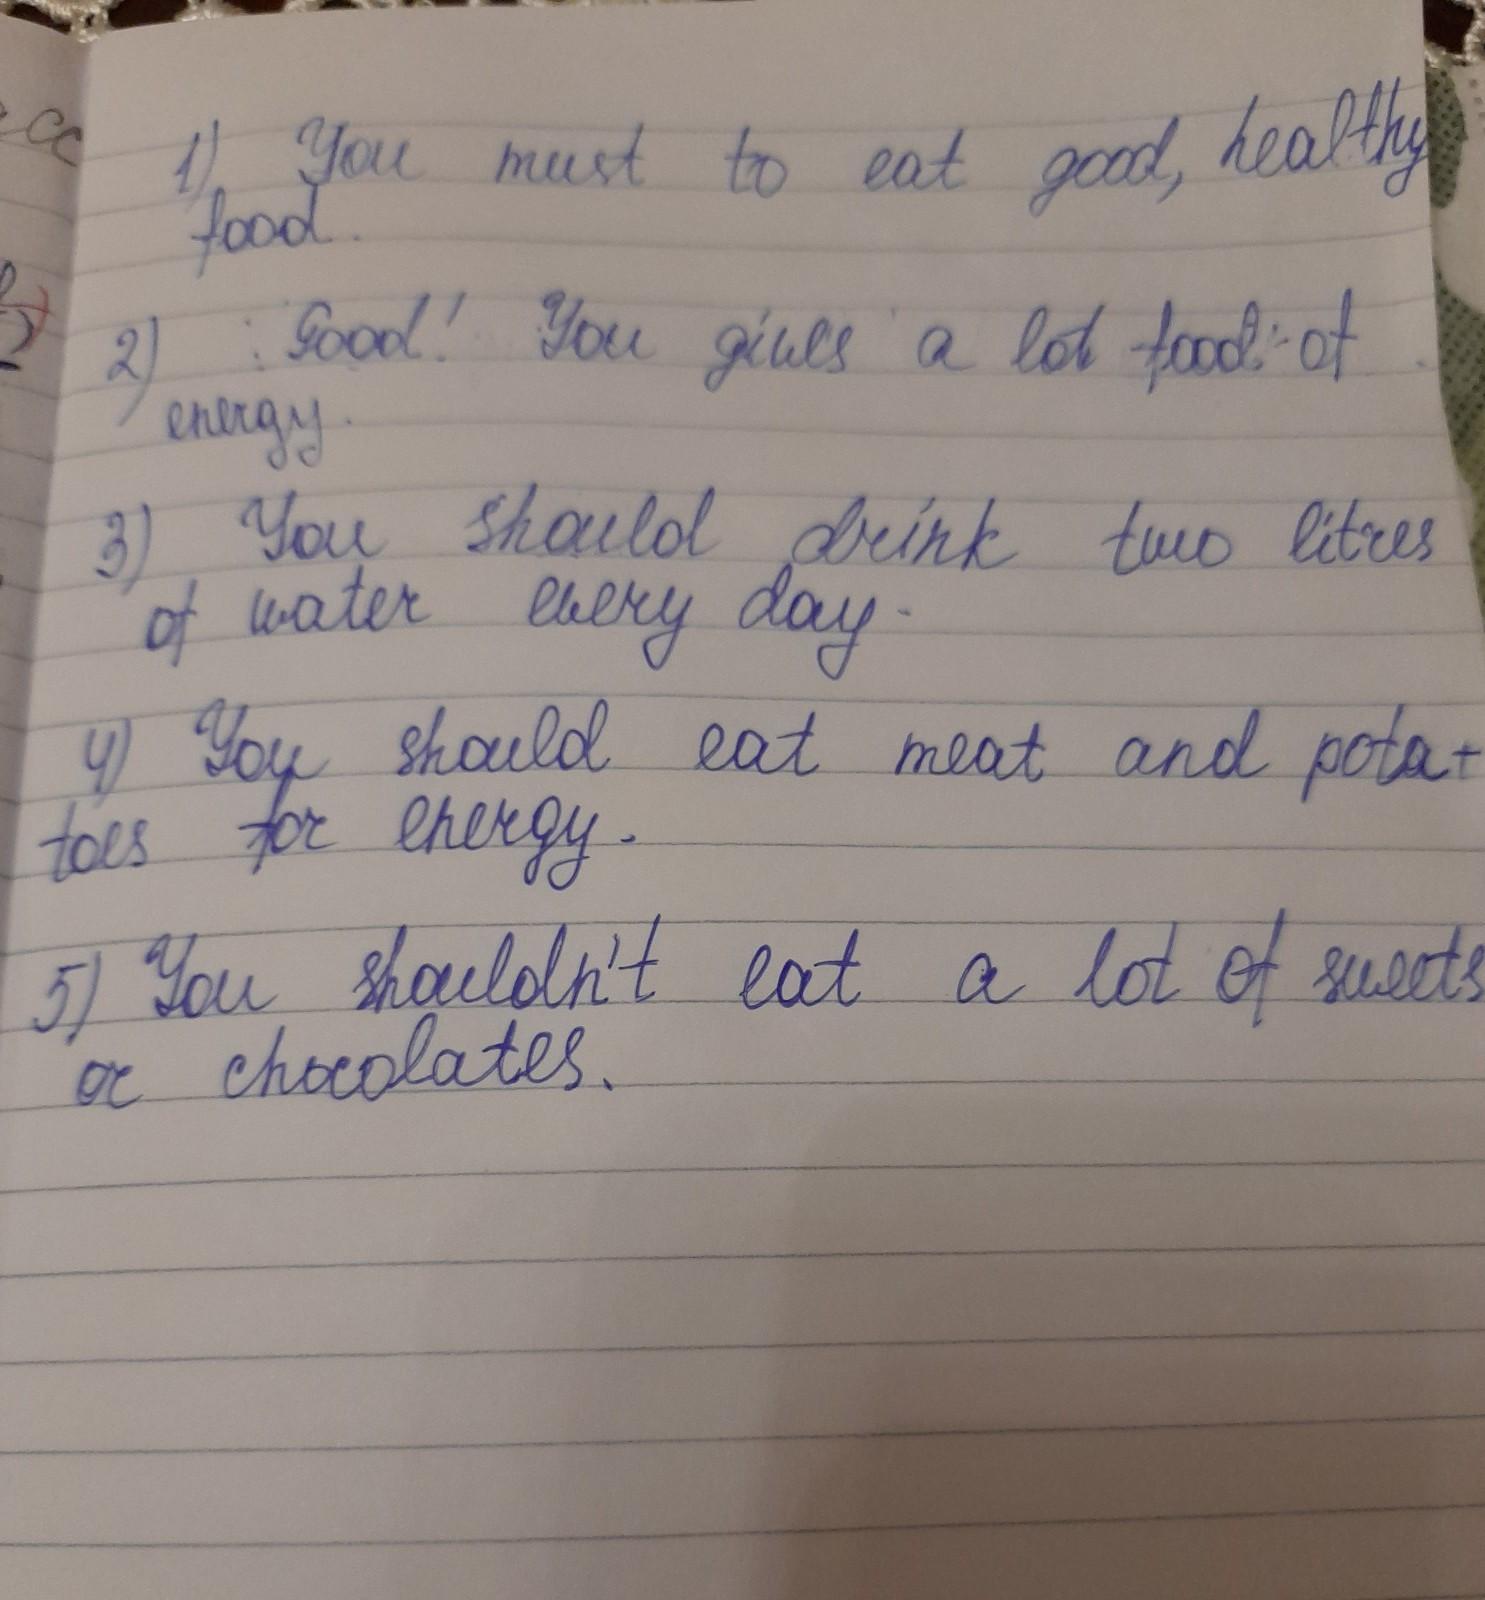 1) You must to eat good, healthy
food.
2) Good! You gives a lot food of
energy.
3) You should drink two litres
of water every day.
4) You should eat meat and pota-
toes for energy.
5) You shouldn't eat a lot of sweets
or chocolates.